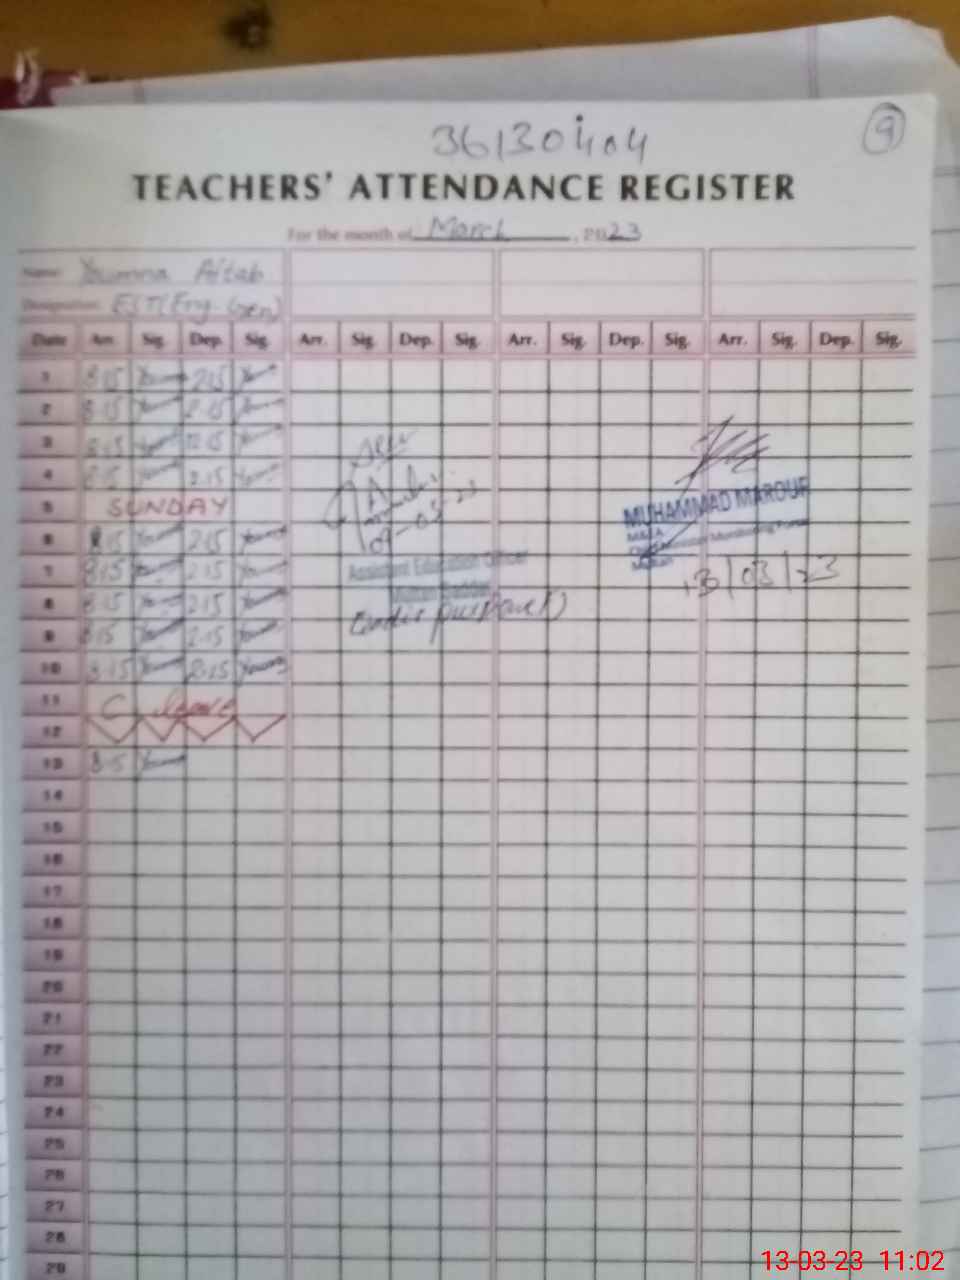 9
36130404
TEACHERS' ATTENDANCE REGISTER
For the month of March, 2023
Name: Youmna Aftab
Designation: EST (Eng. Gen)
Date Arr. Sig. Dep. Sig. Arr. Sig. Dep. Sig. Arr. Sig. Dep. Sig. Arr. Sig. Dep. Sig.
1 8:15 2:15
2 8:15 2:15
3 8:15 12:15
4 8:15 2:15
5 SUNDAY
6 8:15 2:15
7 8:15 2:15
8 8:15 2:15
9 8:15 2:15
10 8:15 2:15
11 C leave
12
13 8:15
14
15
16
17
18
19
20
21
22
23
24
25
26
27
28
29
09-03-23
Assistant Education Officer
Multan Saddar
MUHAMMAD MAROUF
M&EA
Multan
13/03/23
13-03-23 11:02